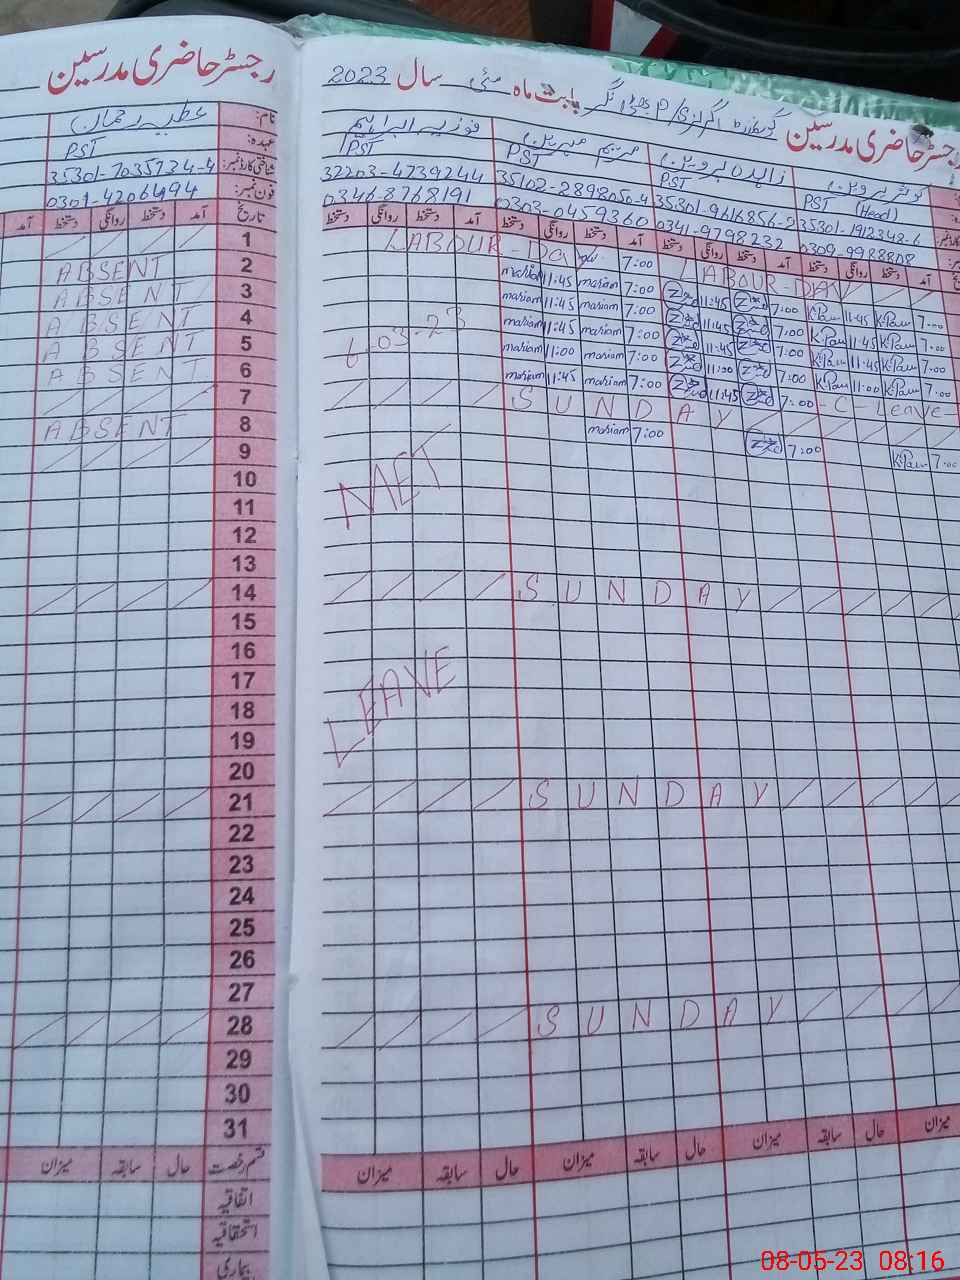 رجسٹر حاضری مدرسین
رجسٹر حاضری مدرسین گورنمنٹ گرلز P/S بابت ماہ مئی سال 2023
نام: عطیہ رحمان
عہدہ: PST
شناختی کارڈ نمبر: 35301-7035734-4
فون نمبر: 0301-4206494
فوزیہ ابراہیم
PST
32203-4739244
03468768191
مریم مہرین
PST
35102-2898050-4
0303-0459360
زاہدہ پروین
PST
35301-9616856-2
0341-9798232
کوثر پروین
PST (Head)
35301-1912348-6
0309-9988808
آمد دستخط روانگی دستخط تاریخ
آمد دستخط روانگی دستخط آمد دستخط روانگی دستخط آمد دستخط روانگی دستخط
1 LABOUR-Day 7:00 LABOUR-DAY
2 ABSENT mariam 11:45 mariam 7:00 11:45 7:00 K.Par 11:45 K.Par 7:00
3 ABSENT mariam 11:45 mariam 7:00 11:45 7:00 K.Par 11:45 K.Par 7:00
4 ABSENT 6-03-23 mariam 11:45 mariam 7:00 11:45 7:00 K.Par 11:45 K.Par 7:00
5 ABSENT mariam 11:00 mariam 7:00 11:00 7:00 K.Par 11:00 K.Par 7:00
6 ABSENT mariam 11:45 mariam 7:00 11:45 7:00 -C-Leave-
7 SUNDAY
8 ABSENT mariam 7:00 7:00 K.Par 7:00
9
10 MET
11
12
13
14 SUNDAY
15
16
17
18 LEAVE
19
20
21 SUNDAY
22
23
24
25
26
27
28 SUNDAY
29
30
31
قسم رخصت حال سابقہ میزان
حال سابقہ میزان حال سابقہ میزان حال سابقہ میزان
اتفاقیہ
استحقاقیہ
بیماری
08-05-23 08:16